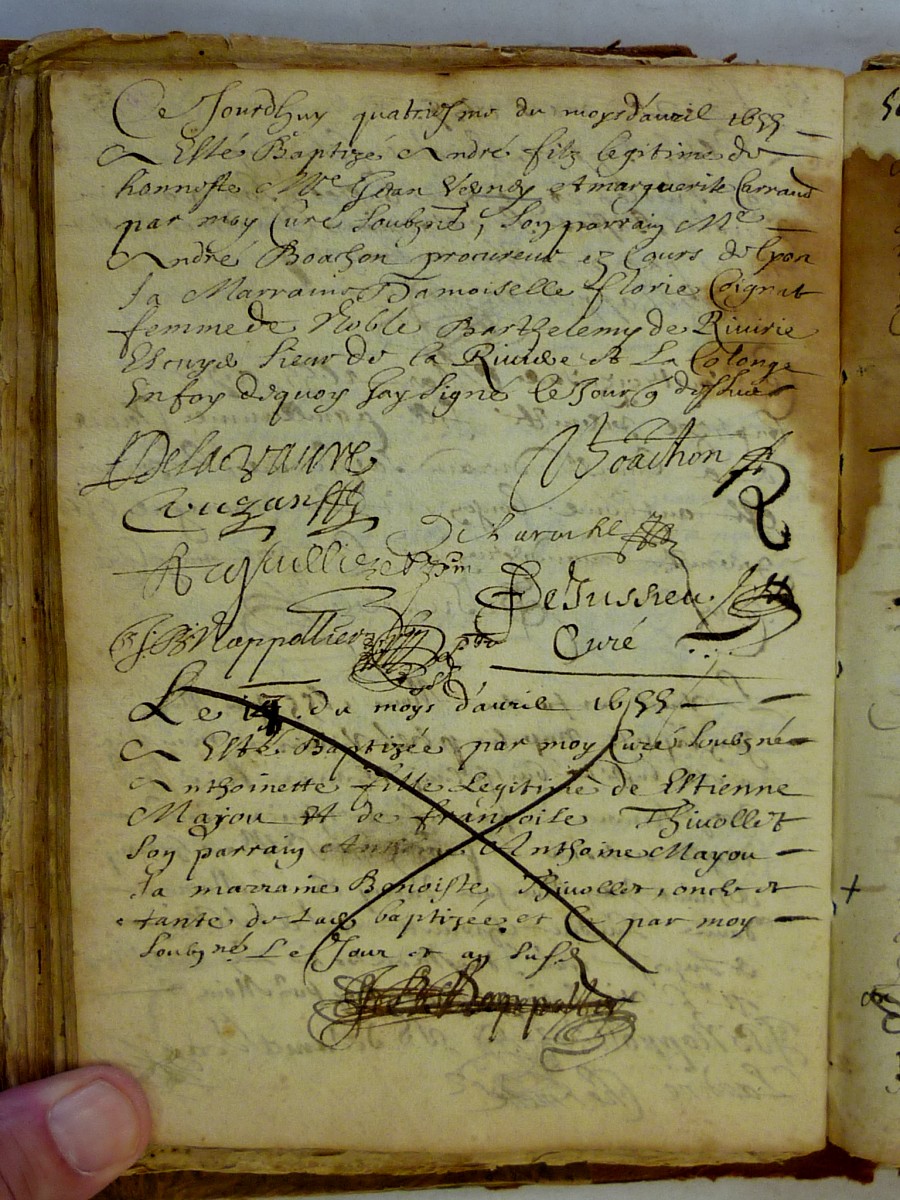 Ce Jourdhuy quatriesme du moys d'avril 1655
A Esté Baptizé André filz legitime de
honneste Mre Jean et marguerite Carraud
par moy Curé soubzné, son parrain Me
André Boachon procureur ez Cours de Lyon
sa Marraine Damoiselle Florie Coignat
femme de Noble Barthelemy de Rivirie
Escuyer sieur de la Riviere et La Colonge
En foy dequoy Jay signé le Jour q dessus
Delavaure Boachon
de Laroche
DeJussieu
JB Chappellier pbr Curé
Le 17 du moys d'avril 1655
A Esté Baptizée par moy Curé soubzné
Anthoinette fille Legitime de Estienne
Mayou et de françoise Thivollet
son parrain Anthoine Mayou
sa marraine Benoiste Thivollet, oncle et
tante de lad baptizée et Ce par moy
soubzné Le Jour et an susd